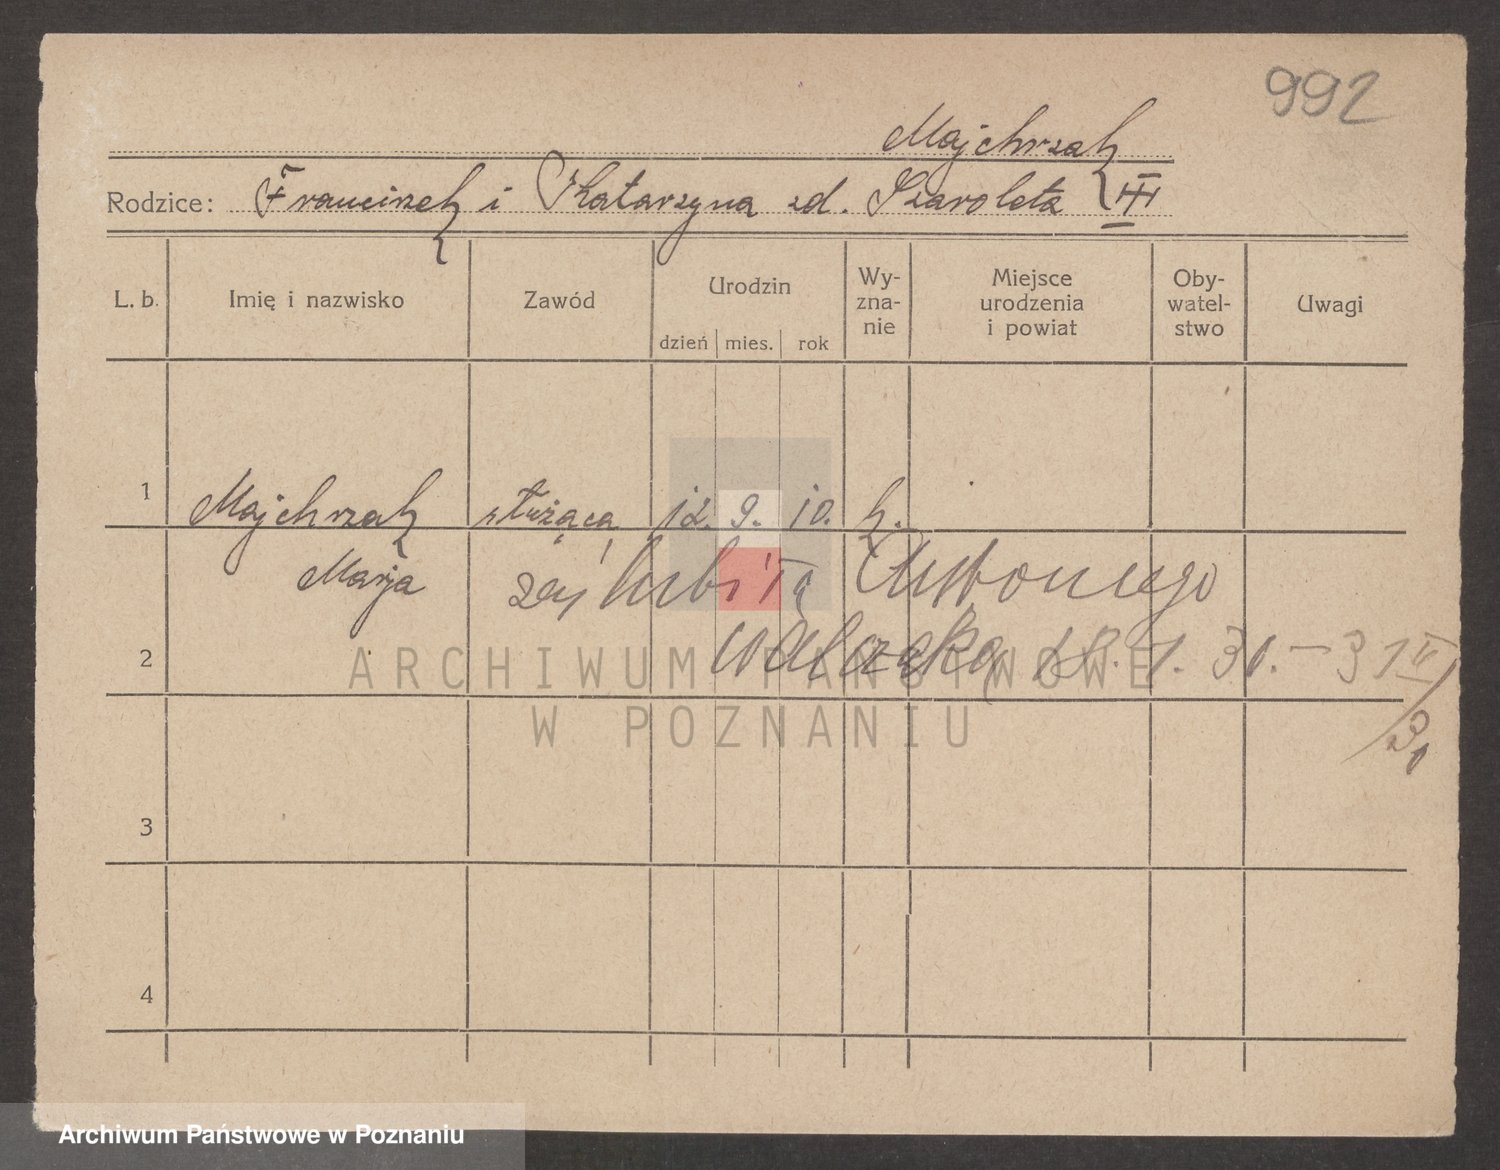 992
Majchrzak
Rodzice: Franciszek i Katarzyna zd. Szaroleta III
L. b. Imię i nazwisko Zawód Urodzin Wy-zna-nie Miejsce urodzenia i powiat Oby-watel-stwo Uwagi
dzień mies. rok
1 Majchrzak służąca 12. 9. 10. k.
Marja zaślubiła Antoniego
2 Walczaka 18. 1. 31. – 31
ARCHIWUM PAŃSTWOWE
W POZNANIU
3
4
Archiwum Państwowe w Poznaniu